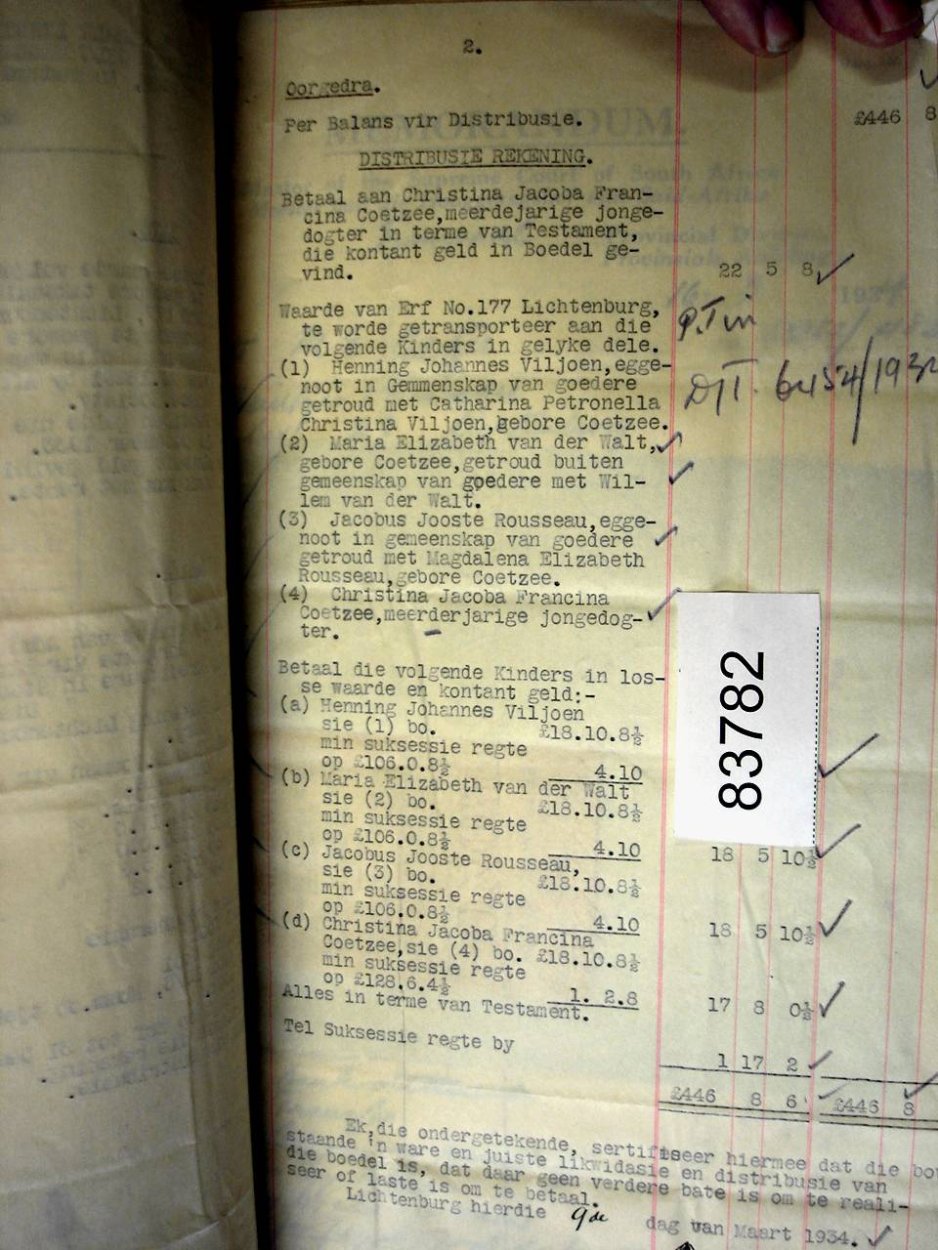 2.
Oorgedra.
£446 8
Per Balans vir Distribusie.
DISTRIBUSIE REKENING.
Betaal aan Christina Jacoba Fran-
cina Coetzee,meerdejarige jonge-
dogter in terme van Testament,
die kontant geld in Boedel ge-
vind. 22 5 8
Waarde van Erf No.177 Lichtenburg,
te worde getransporteer aan die
volgende Kinders in gelyke dele.
(1) Henning Johannes Viljoen,egge-
noot in Gemmenskap van goedere
getroud met Catharina Petronella
Christina Viljoen,gebore Coetzee.
D/T. 6454/1932
(2) Maria Elizabeth van der Walt,
gebore Coetzee,getroud buiten
gemeenskap van goedere met Wil-
lem van der Walt.
(3) Jacobus Jooste Rousseau,egge-
noot in gemeenskap van goedere
getroud met Magdalena Elizabeth
Rousseau,gebore Coetzee.
(4) Christina Jacoba Francina
Coetzee,meerderjarige jongedog-
ter.
83782
Betaal die volgende Kinders in los-
se waarde en kontant geld:-
(a) Henning Johannes Viljoen
sie (1) bo. £18.10.8½
min suksessie regte
op £106.0.8½ 4.10
(b) Maria Elizabeth van der Walt
sie (2) bo. £18.10.8½
min suksessie regte
op £106.0.8½ 4.10 18 5 10½
(c) Jacobus Jooste Rousseau,
sie (3) bo. £18.10.8½
min suksessie regte
op £106.0.8½ 4.10 18 5 10½
(d) Christina Jacoba Francina
Coetzee,sie (4) bo. £18.10.8½
min suksessie regte
op £128.6.4½ 1. 2.8 17 8 0½
Alles in terme van Testament.
Tel Suksessie regte by 1 17 2
£446 8 6 £446 8
Ek,die ondergetekende, sertifiseer hiermee dat die bo
staande 'n ware en juiste likwidasie en distribusie van
die boedel is, dat daar geen verdere bate is om te reali-
seer of laste is om te betaal.
Lichtenburg hierdie 9de dag van Maart 1934.